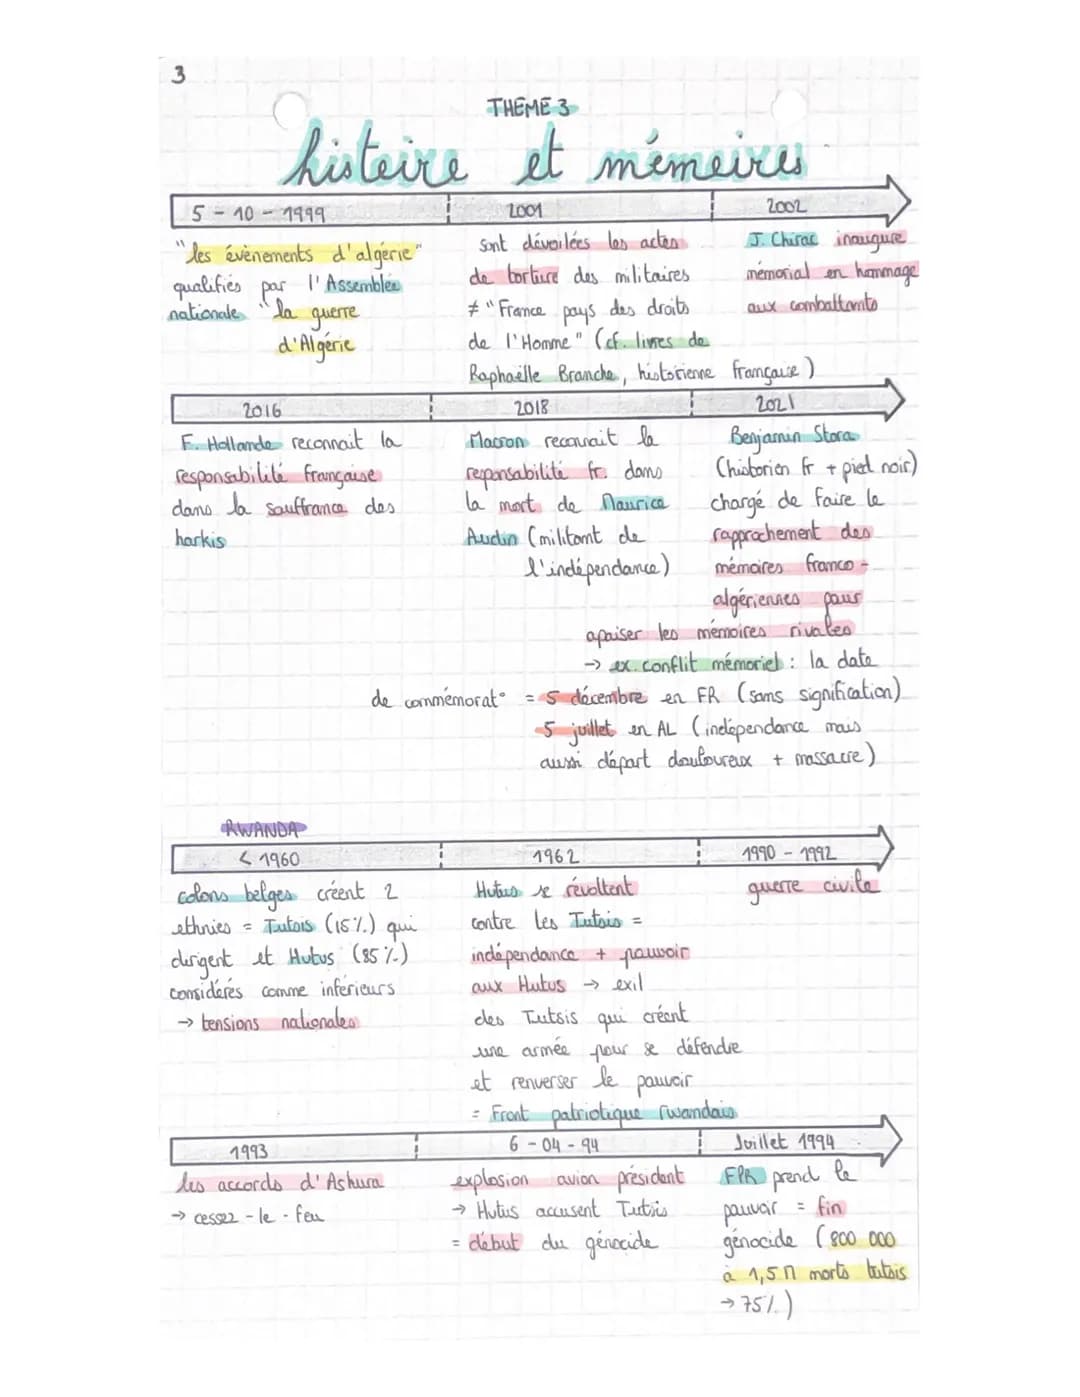 3
THEME 3
histoire et mémoires
5 - 10 - 1999
2001
2002
"les évènements d'algérie"
qualifiés par l'Assemblée
nationale "la guerre
d'Algérie
sont dévoilées les actes
de torture des militaires
≠ "France pays des droits
de l'Homme" (cf. livres de
Raphaëlle Branche, historienne française)
J. Chirac inaugure
mémorial en hommage
aux combattants
2016
2018
2021
F. Hollande reconnait la
responsabilité française
dans la souffrance des
harkis
Macron reconnait la
reponsabilité fr. dans
la mort de Maurice
Audin (militant de
l'indépendance)
Benjamin Stora
(historien fr + pied noir)
chargé de faire le
rapprochement des
mémoires franco-
algériennes pour
apaiser les mémoires rivales
→ ex. conflit mémoriel : la date
de commémorat° = 5 décembre en FR (sans signification)
5 juillet en AL (indépendance mais
aussi départ douloureux + massacre)
RWANDA
< 1960
1962
1990 - 1992
colons belges créent 2
ethnies = Tutsis (15%) qui
dirigent et Hutus (85%)
considérés comme inférieurs
→ tensions nationales
Hutus se révoltent
contre les Tutsis =
indépendance + pouvoir
aux Hutus → exil
des Tutsis qui créent
une armée pour se défendre
et renverser le pouvoir
= Front patriotique rwandais
guerre civile
1993
6 - 04 - 94
Juillet 1994
les accords d'Ashura
→ cessez-le-feu
explosion avion président
→ Hutus accusent Tutsis
= début du génocide
FPR prend le
pouvoir = fin
génocide (800 000
à 1,5M morts tutsis
→ 75%)